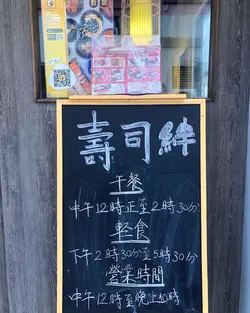 壽司絆
午餐
中午12時正至2時30分
輕食
下午2時30分至5時30分
營業時間
中午12時至晚上10時